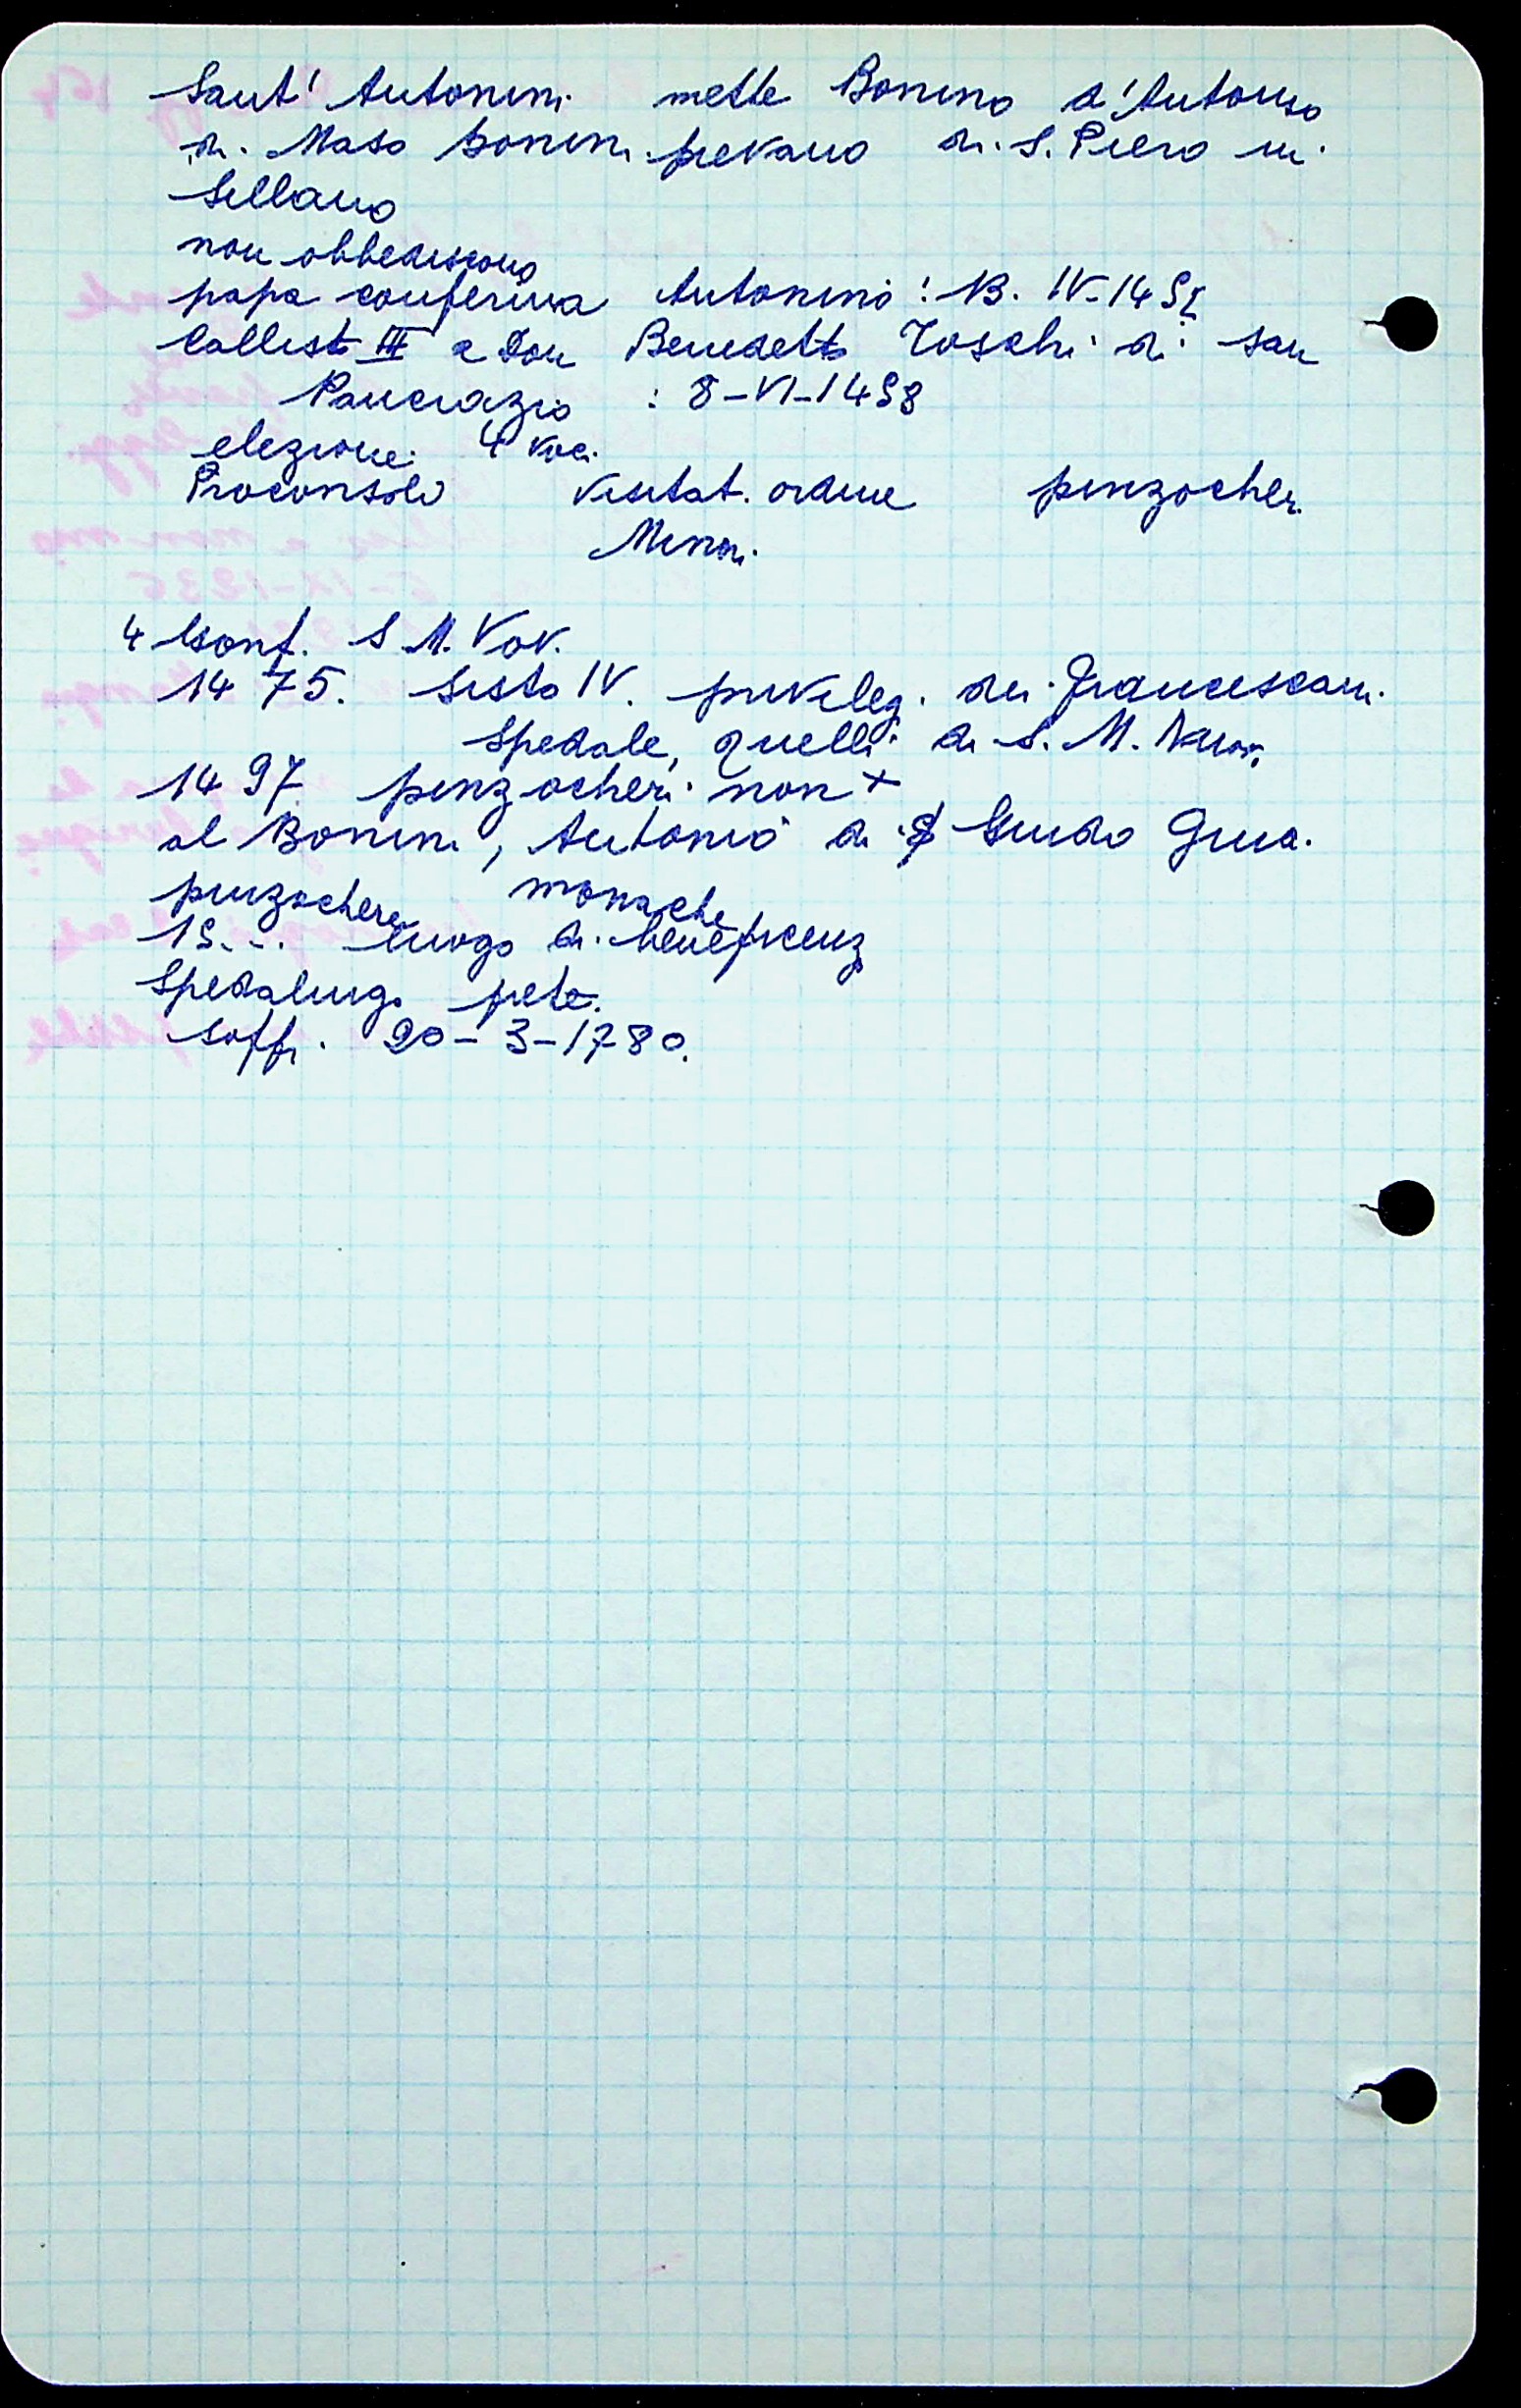 Sant' Antonini mette Bonino d'Antonio
di Maso Bonini pievano di S. Piero in
Sillano
non obbediscono
papa conferma Antonino: B. IV-1451
Callisto III a Don Benedetto Toschi di san
Pancrazio : 8-VI-1458
elezione 4 voci
Proconsolo visitat. ordine pinzocheri
Minori
4 Conf. S. M. Nov.
1475. Sisto IV. privileg. dei Francescani
Spedale, quelli di S. M. Nuov.
1497 pinzocheri non +
al Bonini, Antonio di Guido
pinzochere monache
15... luogo di beneficenz
Spedalingo prete.
soppr. 20-3-1780.